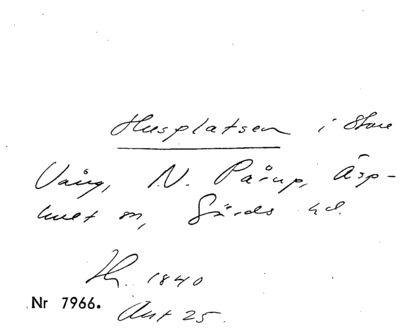 Husplatsen i Store
Vång, N. Pårup, Äsp-
huet sn, Gärds hd.
Th. 1840
Nr 7966.
Ant 25.